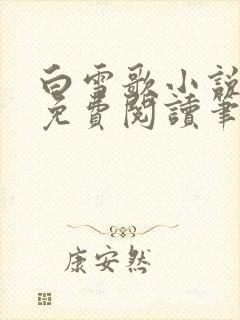 白雪歌小說
免費閱讀筆
康安然